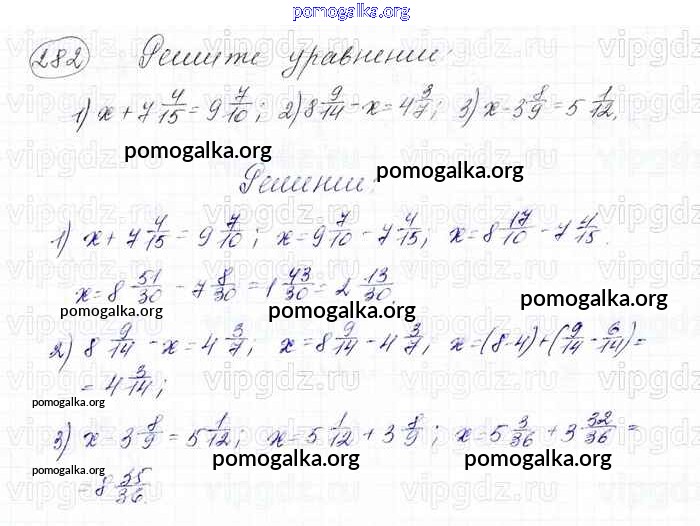 pomogalka.org
282 Решите уравнение:
1) x + 7 4/15 = 9 7/10; 2) 8 9/14 - x = 4 3/7; 3) x - 3 8/9 = 5 1/12.
pomogalka.org
pomogalka.org
Решение:
1) x + 7 4/15 = 9 7/10; x = 9 7/10 - 7 4/15; x = 8 17/10 - 7 4/15.
x = 8 51/30 - 7 8/30 = 1 43/30 = 2 13/30.
pomogalka.org
pomogalka.org
pomogalka.org
2) 8 9/14 - x = 4 3/7; x = 8 9/14 - 4 3/7; x = (8-4) + (9/14 - 6/14) =
= 4 3/14;
pomogalka.org
3) x - 3 8/9 = 5 1/12; x = 5 1/12 + 3 8/9; x = 5 3/36 + 3 32/36 =
pomogalka.org
pomogalka.org
pomogalka.org
= 8 35/36.
vipgdz.ru